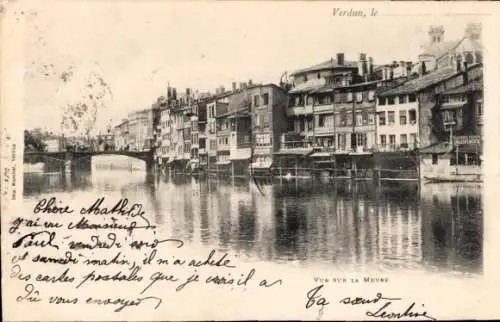 Verdun, le
Chère Mathilde
J'ai vu Monsieur
Paul vendredi soir et
samedi matin, il m'a acheté
des cartes postales que je crois il a
dû vous envoyer
VUE SUR LA MEUSE
Ta sœur
Léontine